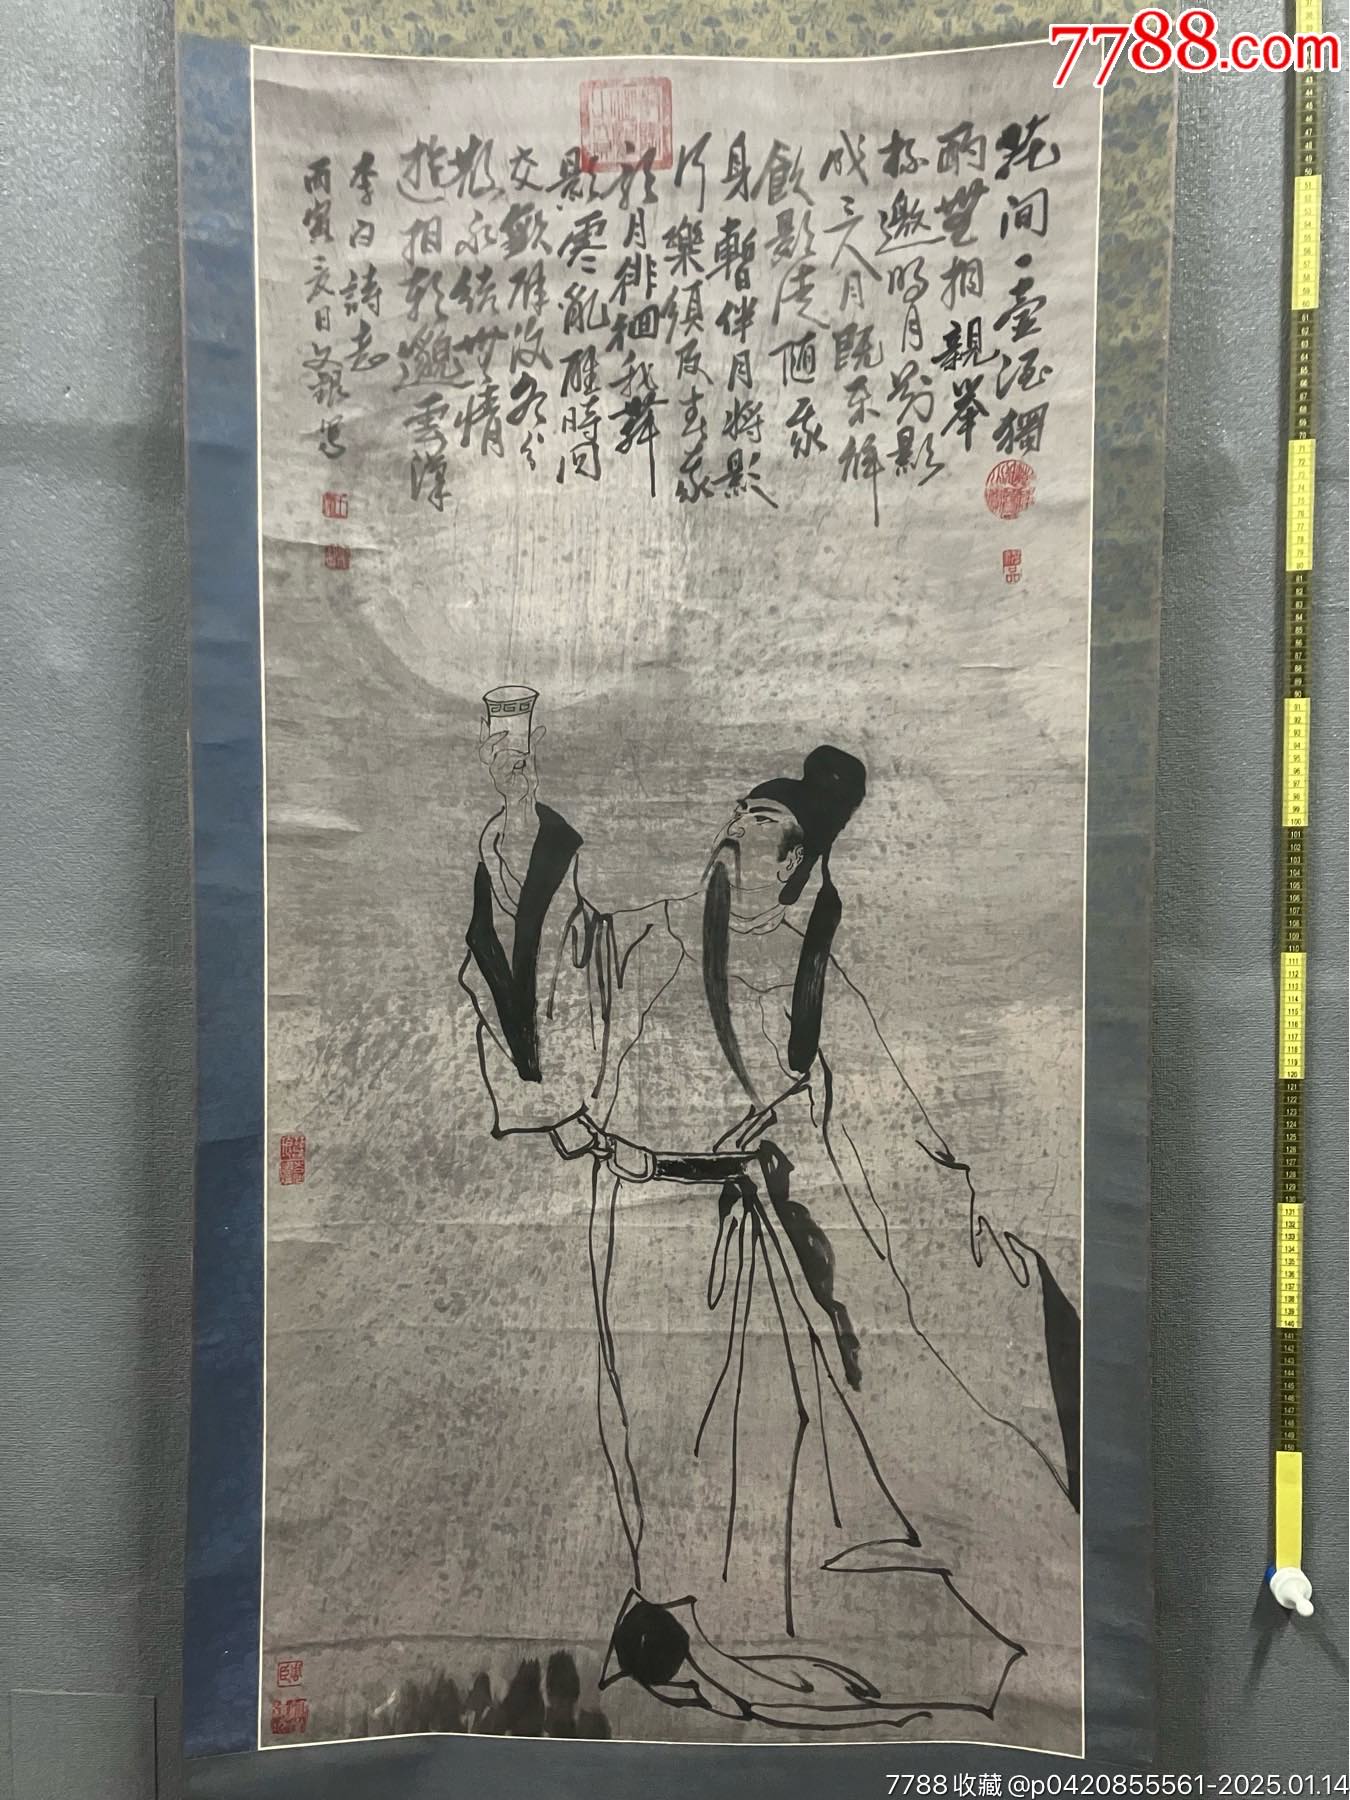 7788.com
花间一壶酒獨
酌無相親举
杯邀明月对影
成三人月既不解
飲影徒随我
身暫伴月将影
行樂須及春我
歌月徘徊我舞
影零亂醒時同
交歡醉後各分
散永结無情
遊相期邈雲漢
李白詩意
丙寅夏日文銀写
7788收藏@p0420855561-2025.01.14